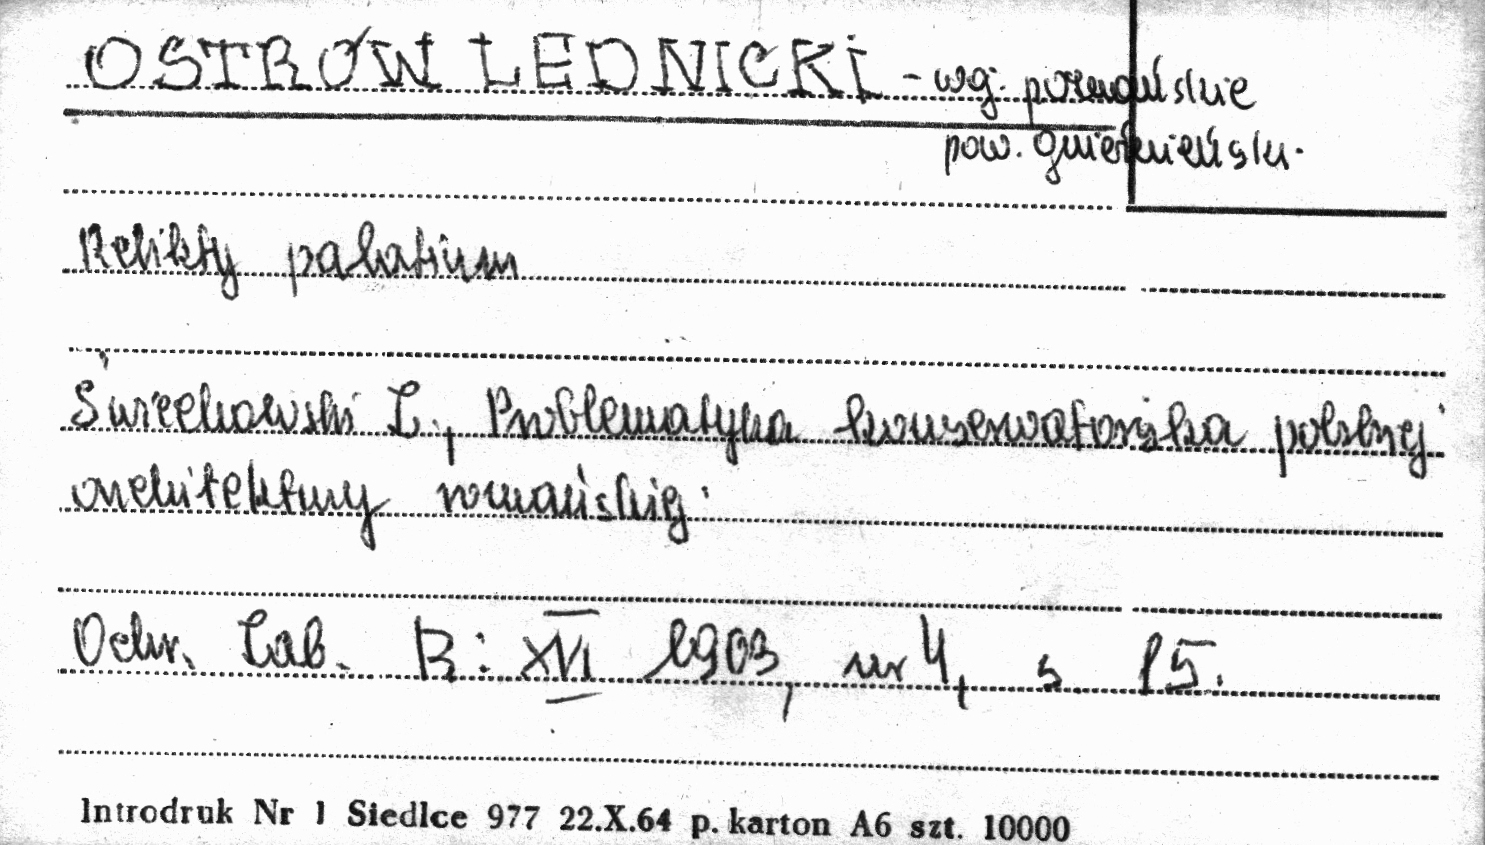 OSTRÓW LEDNICKI - woj. poznańskie
pow. gnieźnieński.
Relikty palatium
Święchowski Z., Problematyka konserwatorska polskiej
architektury romańskiej.
Ochr. Zab. R: XVI 1903, nr 4, s. 15.
Introdruk Nr 1 Siedlce 977 22.X.64 p. karton A6 szt. 10000